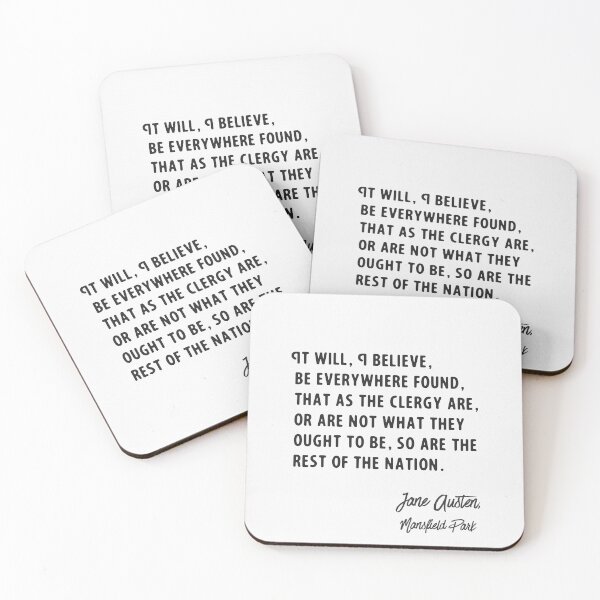 IT WILL, I BELIEVE,
BE EVERYWHERE FOUND,
THAT AS THE CLERGY ARE
OR ARE THEY
ARE
IT WILL, I BELIEVE,
BE EVERYWHERE FOUND,
THAT AS THE CLERGY ARE,
OR ARE NOT WHAT THEY
OUGHT TO BE, SO ARE THE
REST OF THE NATION.
IT WILL, I BELIEVE,
BE EVERYWHERE FOUND,
THAT AS THE CLERGY ARE,
OR ARE NOT WHAT THEY
OUGHT TO BE, SO ARE THE
REST OF THE NATION
IT WILL, I BELIEVE,
BE EVERYWHERE FOUND,
THAT AS THE CLERGY ARE,
OR ARE NOT WHAT THEY
OUGHT TO BE, SO ARE THE
REST OF THE NATION.
Jane Austen,
Mansfield Park